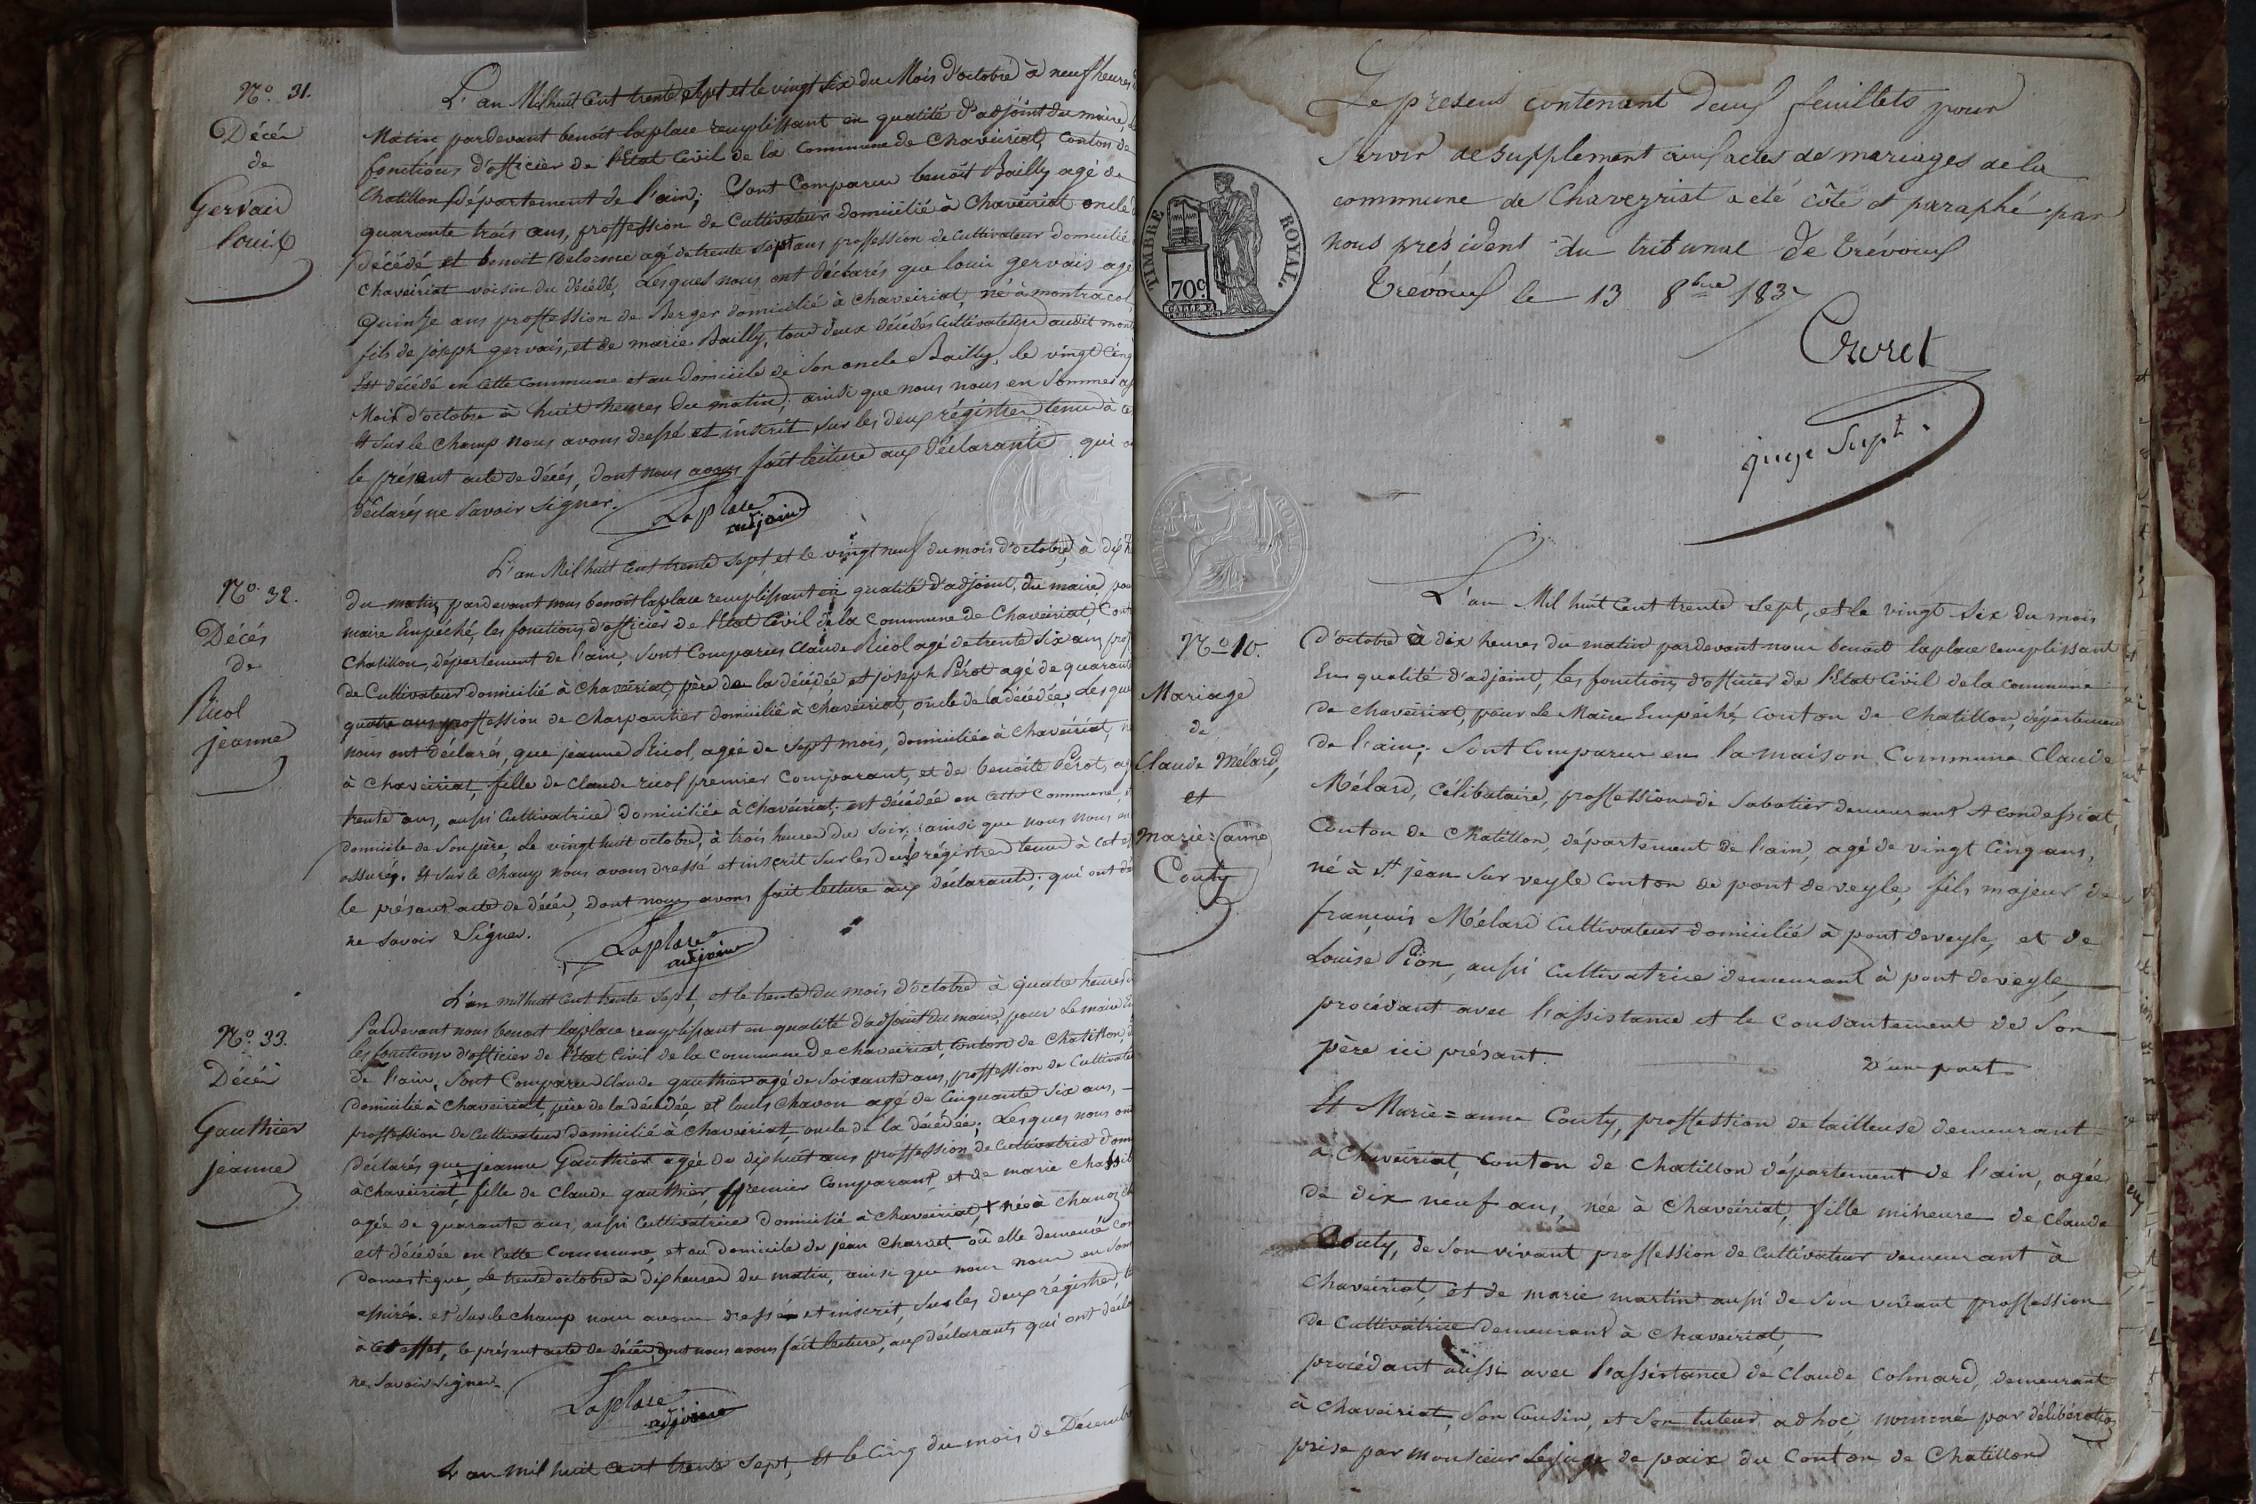 N.o 31.
Décès
de
Gervais
louis
L'an Mil huit Cent trente sept et le vingt six du Mois d'octobre à neuf heures
Matin pardevant benoît laplace remplissant en qualité d'adjoint du maire,
fonctions d'officier de l'Etat Civil de la Commune de Chaveiriat, Conton de
Chatillon, département de l'ain; Sont Comparus benoît Bailly agé de
quarante trois ans, proffession de Cultivateur domicilié à Chaveiriat oncle
décédé et benoît Delorme agé de trente sept ans proffession de Cultivateur domicilié
Chaveiriat voisin du décédé, Lesquels nous ont déclarés que louis gervais agé
Quinze ans proffession de Berger domicilié à Chaveiriat, né à montracol,
fils de joseph gervais, et de marie Bailly, tous deux décédés Cultivateurs audit
Est décédé en cette Commune et au domicile de Son oncle Bailly, le vingt cinq
Mois d'octobre à huit heures du matin; ainsi que nous nous en Sommes
Et Sur le Champ nous avons dressé et inscrit sur les deux régistres tenus à
le présent acte de décès, dont nous avons fait lecture aux déclarants qui
déclarés ne Savoir signer.
Laplace
adjoint
N.o 32.
Décès
de
Ricol
jeanne
L'an Mil huit Cent trente sept et le vingt neuf du mois d'octobre, à dix
du matin pardevant nous benoît laplace remplissant en qualité d'adjoint, du maire, pour
maire Empéché, les fonctions d'officier de l'Etat Civil de la Commune de Chaveiriat,
Chatillon, département de l'ain, Sont Comparus Claude Ricol agé de trente Six ans
de Cultivateur domicilié à Chaveiriat, père de la décédée et joseph Pérot agé de quarante
quatre ans proffession de Charpantier domicilié à chaveiriat, oncle de la décédée,
nous ont déclarés, que jeanne Ricol, agée de Sept mois, domiciliée à Chaveiriat,
à Chaveiriat, fille de Claude ricol premier Comparant, et de benoîte Pérot,
trente ans, aussi Cultivatrice domiciliée à Chaveiriat; est décédée en cette Commune,
domicile de Son père, Le vingt huit octobre, à trois heures du Soir, ainsi que nous nous en
assurés. Et Sur le Champ nous avons dressé et inscrit Sur les deux régistres tenus à cet
le présant acte de décès, dont nous avons fait lecture aux déclarants; qui ont
ne savoir Signer.
Laplace
adjoint
N.o 33.
Décès
Gauthier
jeanne
L'an mil huit cent trente sept, et le trente du mois d'octobre à quatre heures
Pardevant nous benoît laplace remplissant en qualité d'adjoint du maire, pour le maire
les fonctions d'officier de l'état Civil de la Commune de Chaveiriat, Conton de Chatillon,
de l'ain, Sont Comparus Claude gauthier agé de Soixante ans, proffession de Cultivateur
domicilié à Chaveiriat, père de la décédée et louis chavon agé de Cinquante Six ans,
proffession de Cultivateur domicilié à Chaveiriat, oncle de la décédée; Lesques nous ont
déclarés que jeanne Gauthier agée de dix huit ans proffession de Cultivatrice
à Chaveiriat, fille de Claude gauthier, premier Comparant, et de marie
agée de quarante ans, aussi Cultivatrice domicilié à Chaveiriat, + née à
est décédée en Cette Commune, et au domicile de jéan Charvet où elle demeure
domestique, Le trente octobre à dix heures du matin, ainsi que nous nous en
assurés. et Sur le champ nous avons dressé et inscrit, Sur les deux régistres,
à cet effet, le présent acte de décès dont nous avons fait lecture, aux déclarants qui ont
ne Savoir signer.
Laplace
adjoint
L'an mil huit cent trente Sept, et le Cinq du mois de Décembre
Le present contenant deux feuillets pour
servir de supplement aux actes de mariages de la
commune de Chaveyriat a été côté et paraphé par
nous président du tribunal de Trévoux
Trévoux le 13 8bre 1837
juge Supt.
TIMBRE ROYAL.
70c.
N.o 10.
Mariage
de
Claude Mélard,
et
Marie=anne
Couty
L'an Mil huit Cent trente Sept, et le vingt Six du mois
d'octobre à dix heures du matin pardevant nous benoît laplace remplissant
En qualité d'adjoint, les fonctions d'officier de l'Etat Civil de la Commune
de chaveiriat, pour Le Maire Empéché Conton de Chatillon, département
de l'ain; Sont Comparus en la maison Commune Claude
Mélard, Célibataire, proffession de Sabotier demeurant A condessiat,
Conton de Chatillon, département de l'ain, agé de vingt Cinq ans,
né à St. jean Sur veyle Conton de pont de veyle, fils majeur de
françois Mélard Cultivateur domicilié à pont de veyle, et de
Louise Pion, aussi Cultivatrice demeurant à pont de veyle,
procédant avec l'assistance et le Consantement de Son
père ici présant. D'une part
Et Marie=anne Couty, proffession de tailleuse demeurant
à Chaveiriat, Conton de Chatillon département de l'ain, agée
de dix neuf ans, née à Chaveiriat, fille mineure de Claude
Couty, de Son vivant proffession de Cultivateur demeurant à
Chaveiriat, et de marie martin aussi de Son vivant proffession
de Cultivatrice demeurant à Chaveiriat,
procédant aussi avec l'assistance de Claude Colmard, demeurant
à Chaveiriat, Son Cousin, et Son tuteur ad hoc, nommé par délibération
prise par Monsieur Le juge de paix du Conton de Chatillon